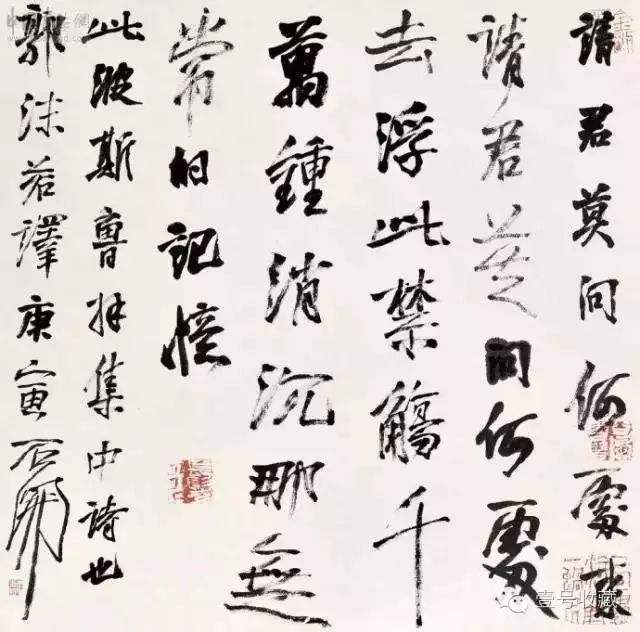 請君莫問何處來
請君莫問何處
去浮此禁觴千
萬鍾消沉那無
常的記憶
此波斯魯拜集中詩也
郭沫若譯庚寅石開
壹号收藏